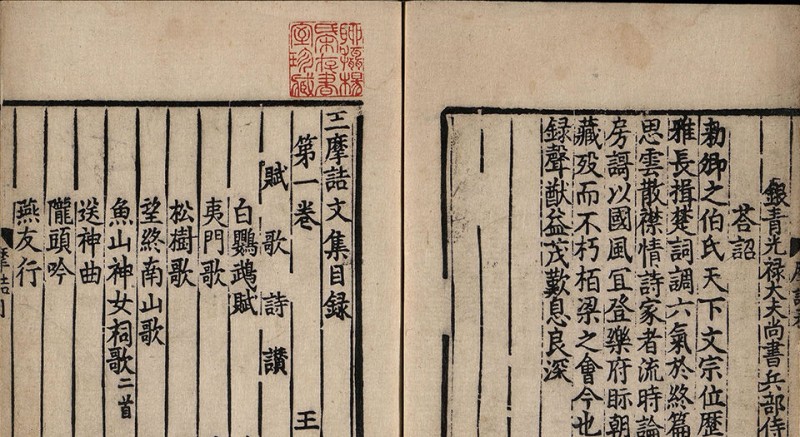 銀青光禄大夫尚書兵部侍
荅詔
勑卿之伯氏天下文宗位歷
雅長揖楚詞調六氣於終篇
思雲散襟情詩家者流時論
房謌以國風冝登樂府眎朝
藏歿而不朽柏梁之會今也
録聲猷益茂歎息良深
室珍藏
王摩詰文集目録
第一卷 王
賦 歌 詩 讃
白鸚鵡賦
夷門歌
松樹歌
望終南山歌
魚山神女祠歌二首
送神曲
隴頭吟
燕友行
摩詰目